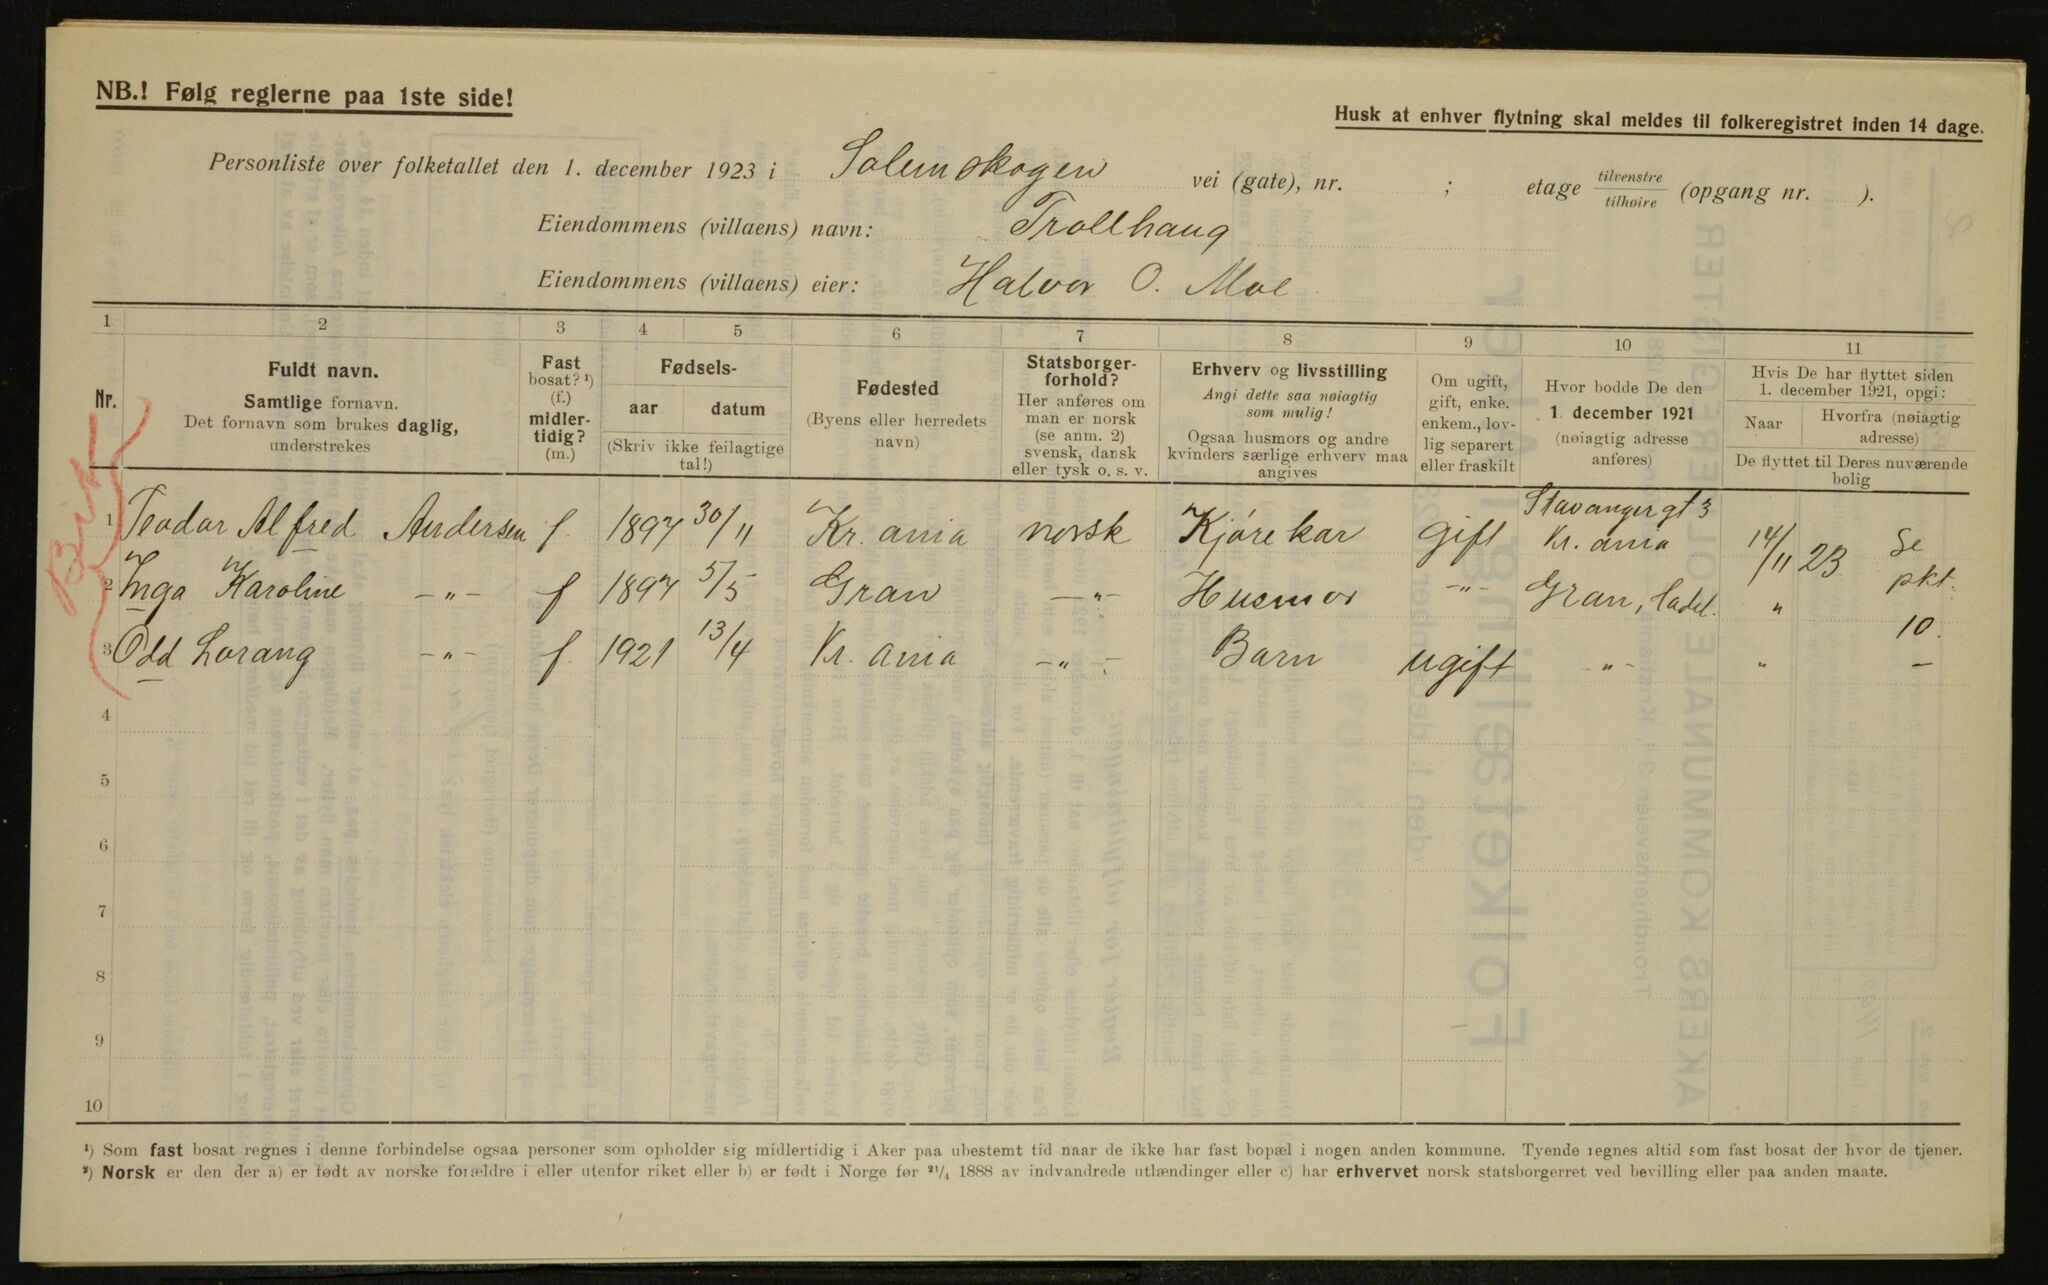 NB.! Følg reglerne paa 1ste side!
Husk at enhver flytning skal meldes til folkeregistret inden 14 dage.
Personliste over folketallet den 1. december 1923 i Solemskogen vei (gate), nr. ; etage tilvenstre/tilhøire (opgang nr. ).
Eiendommens (villaens) navn: Trollhaug
Eiendommens (villaens) eier: Halvor O. Moe
1 2 3 4 5 6 7 8 9 10 11
Nr.
Fuldt navn.
Samtlige fornavn.
Det fornavn som brukes daglig,
understrekes
Fast
bosat? ¹)
(f.)
midler-
tidig?
(m.)
Fødsels-
aar datum
(Skriv ikke feilagtige
tal!)
Fødested
(Byens eller herredets
navn)
Statsborger-
forhold?
Her anføres om
man er norsk
(se anm. 2)
svensk, dansk
eller tysk o. s. v.
Erhverv og livsstilling
Angi dette saa nøiagtig
som mulig!
Ogsaa husmors og andre
kvinders særlige erhverv maa
angives
Om ugift,
gift, enke.
enkem., lov-
lig separert
eller fraskilt
Hvor bodde De den
1. december 1921
(nøiagtig adresse
anføres)
Hvis De har flyttet siden
1. december 1921, opgi:
Naar Hvorfra (nøiagtig
adresse)
De flyttet til Deres nuværende
bolig
1 Teodor Alfred Andersen f. 1897 30/11 Kr. ania norsk Kjørekar gift Stavangergt 3
Kr. ania 14/11 23 Se
2 Inga Karoline -"- f 1897 5/5 Gran -"- Husmor -"- Gran, Hadel. " pkt.
10.
3 Odd Lorang -"- f. 1921 13/4 Kr. ania -"- Barn ugift -"- " -
4
5
6
7
8
9
10
¹) Som fast bosat regnes i denne forbindelse ogsaa personer som opholder sig midlertidig i Aker paa ubestemt tid naar de ikke har fast bopæl i nogen anden kommune. Tyende regnes altid som fast bosat der hvor de tjener.
²) Norsk er den der a) er født av norske forældre i eller utenfor riket eller b) er født i Norge før 21/4 1888 av indvandrede utlændinger eller c) har erhvervet norsk statsborgerret ved bevilling eller paa anden maate.